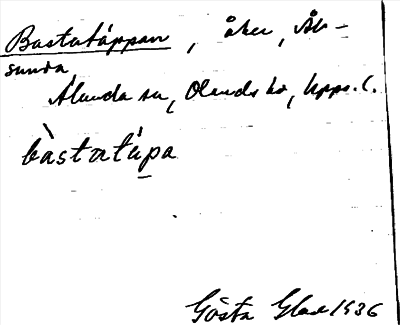 Bastutäppan, åker, Åb-
sunda
Ålunda sn, Olands hd, Upps. l.
bàstatúpa
Gösta Glad 1936